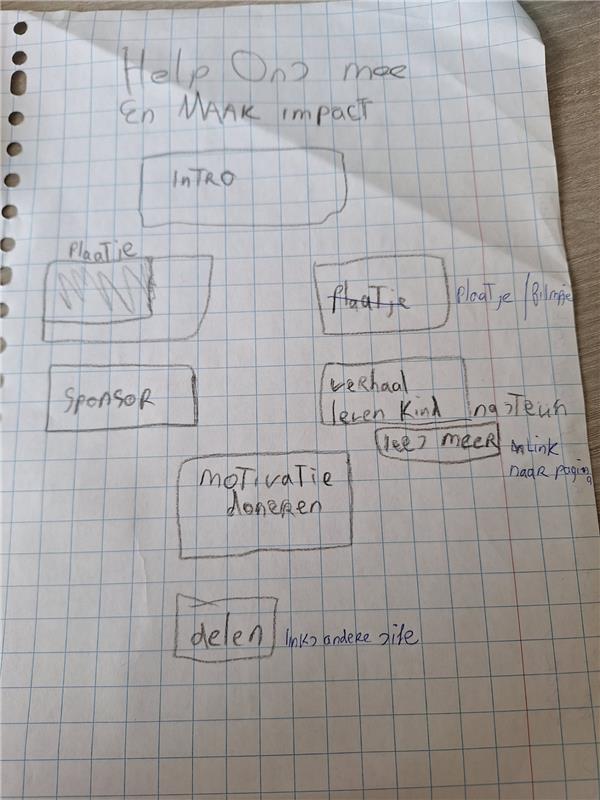 Help Ons mee
En MAAK impact
INTRO
Plaatje
plaatje
Plaatje / filmpje
SPONSOR
verhaal
leven Kind na steun
lees MEER
link
naar pagina
MoTivaTie
doneren
delen
links andere site